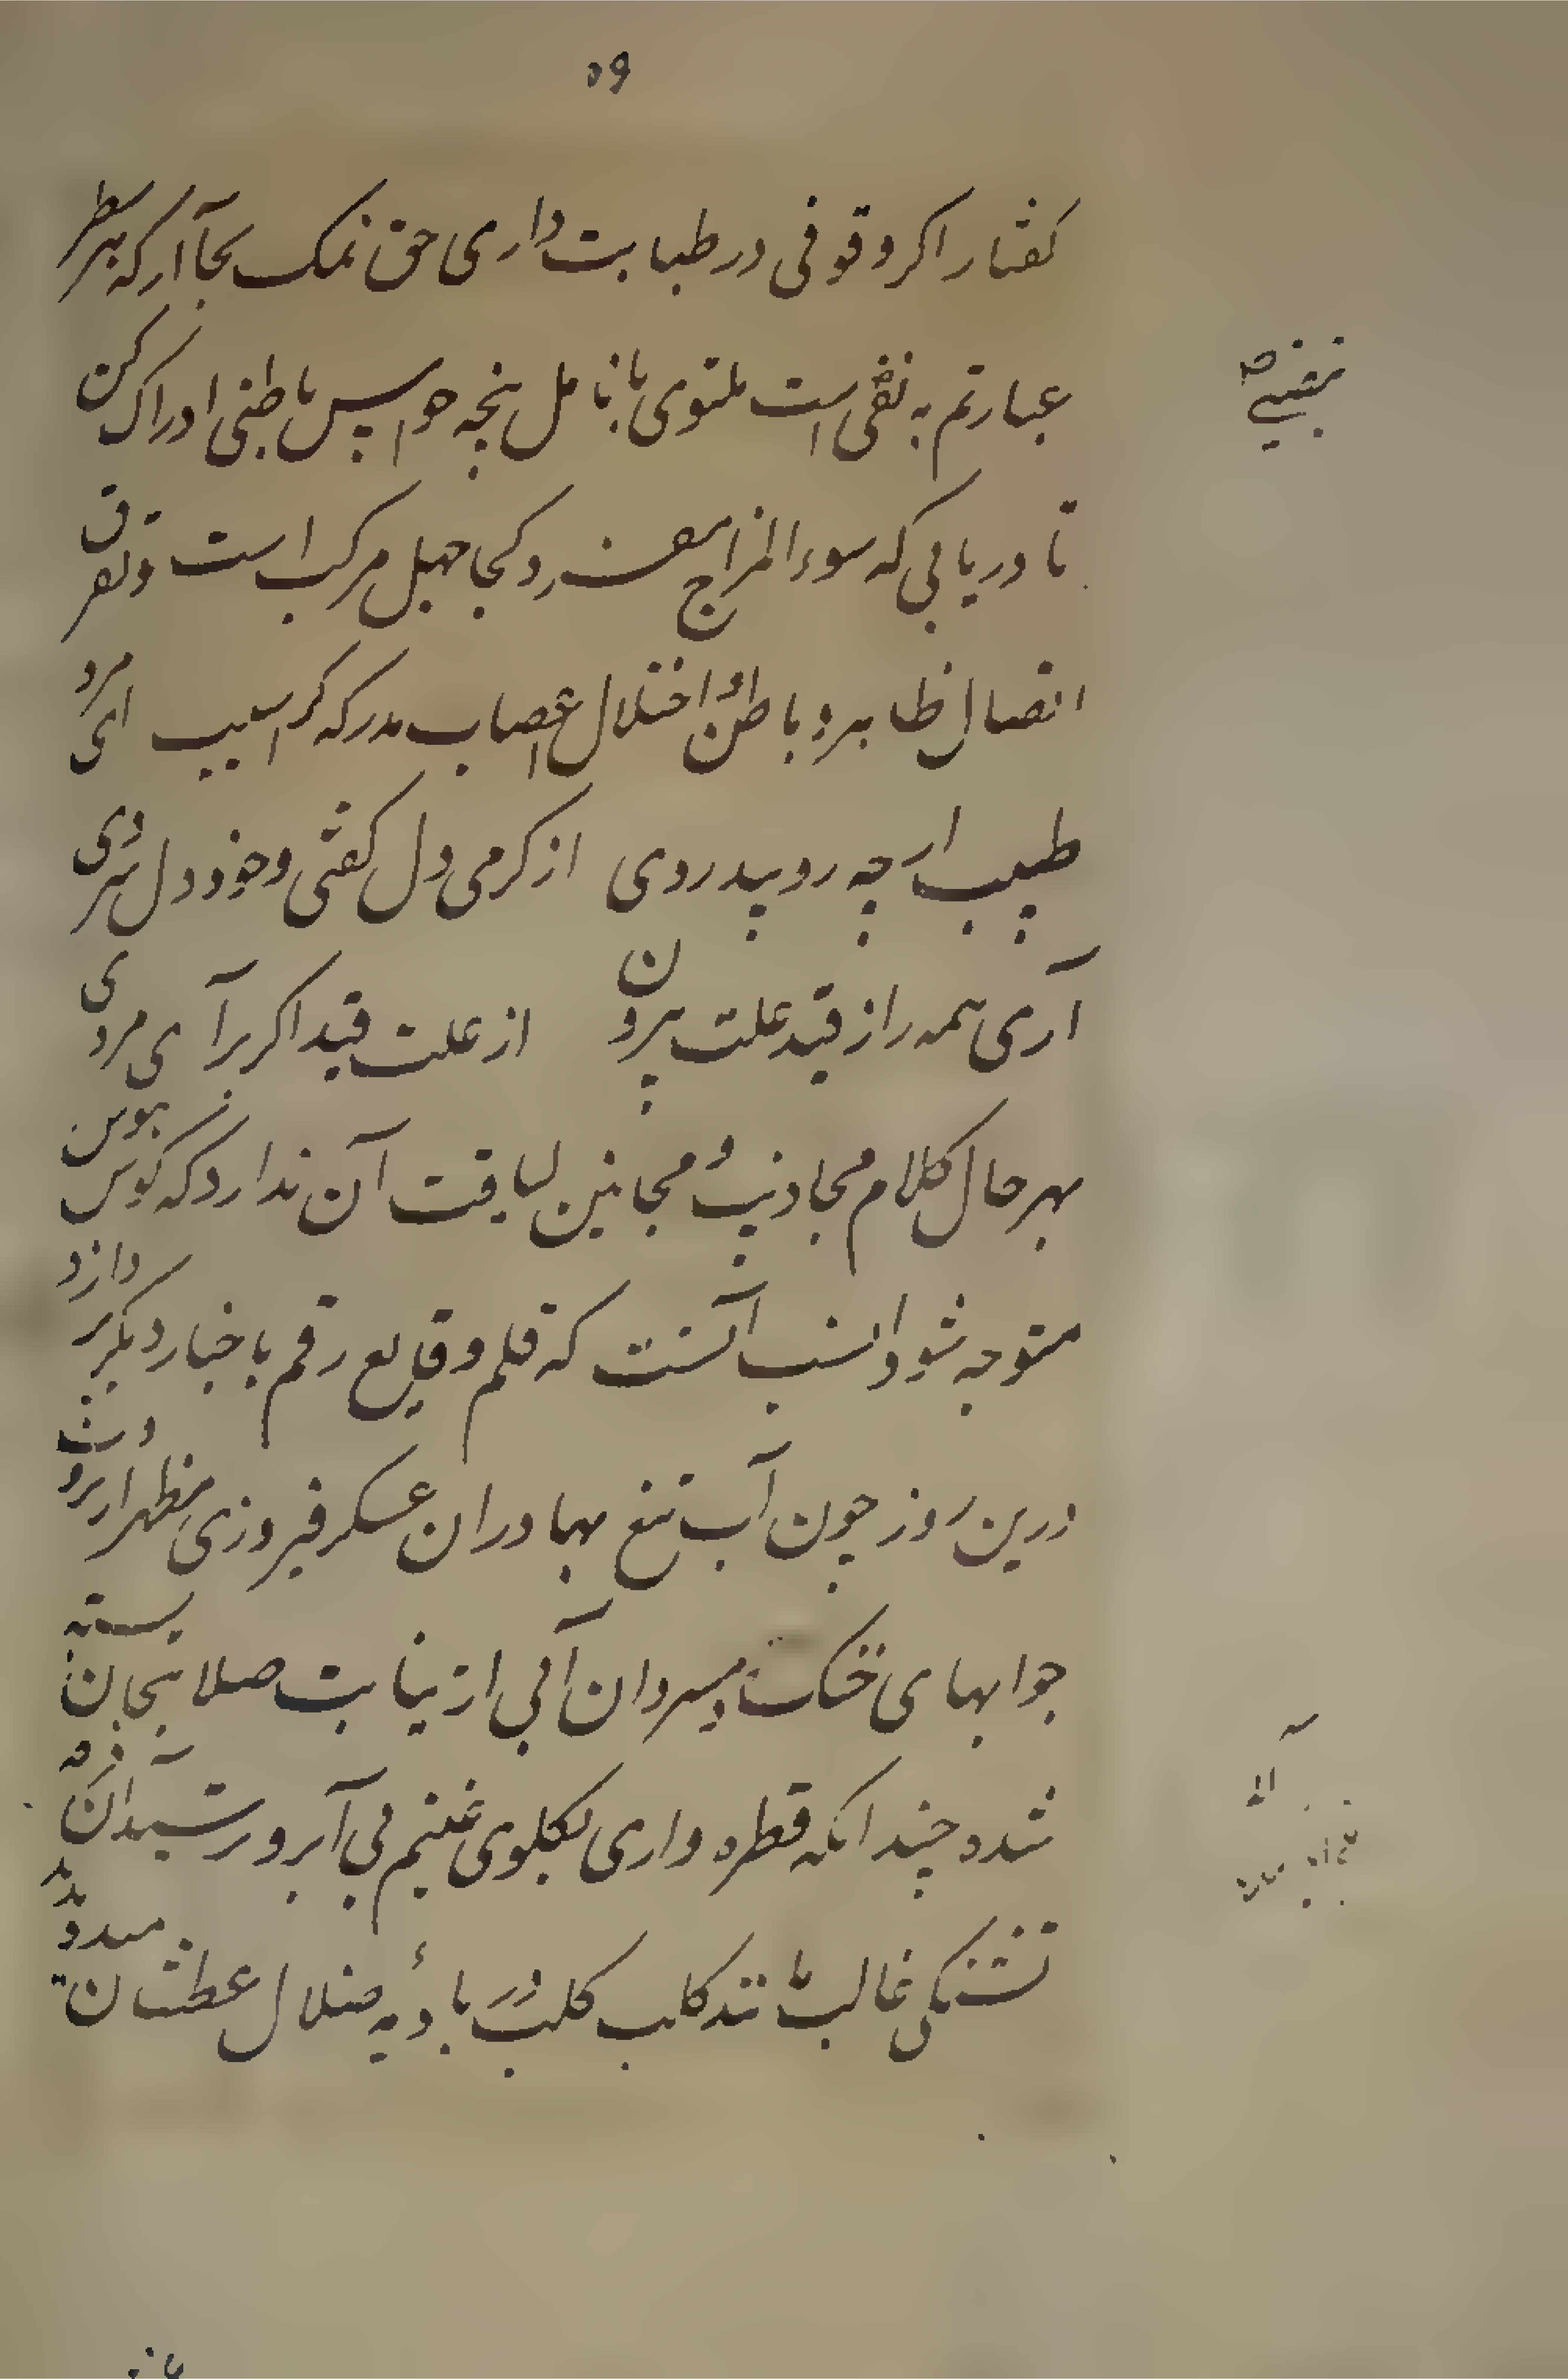 ۵۹
کفتار اکر وقوفی در طبابت داری حق نمک بجا آر که هر سطر
عبارتم به نقی است ملتوی بانامل پنجه حواس باطنی ادراک کن
تا دریابی که سوء المزاج رو کجا جهل مرکب است و تفرق
اتصال ظاهر و باطن و اختلال اعصاب مدرکه کراسیب ای مرد
طبیب ار چه رو پیدردی از کرمی دل کفتی و خود دل سردی
آری همه را از قید علت بیرون از علت قید اکر برآیی مردی
بهر حال کلام مجاذیب و مجانین لیاقت آن ندارد که کوش هوش
متوجه شود و انسب آنست که قلم وقایع رقم باخبار دیگر پردازد
درین روز چون آب تیغ بهادران عسکر فیروزی مظهر ابر و ش
جوابهای خشک میردان آبی از نیابت صلابتخان بسته
شده چندانکه قطره واری بکلوی غنیم بی آبرو رسیدن
تشنگی غالب مانند کلب کلب در بادیه ضلال عطشان میدوید